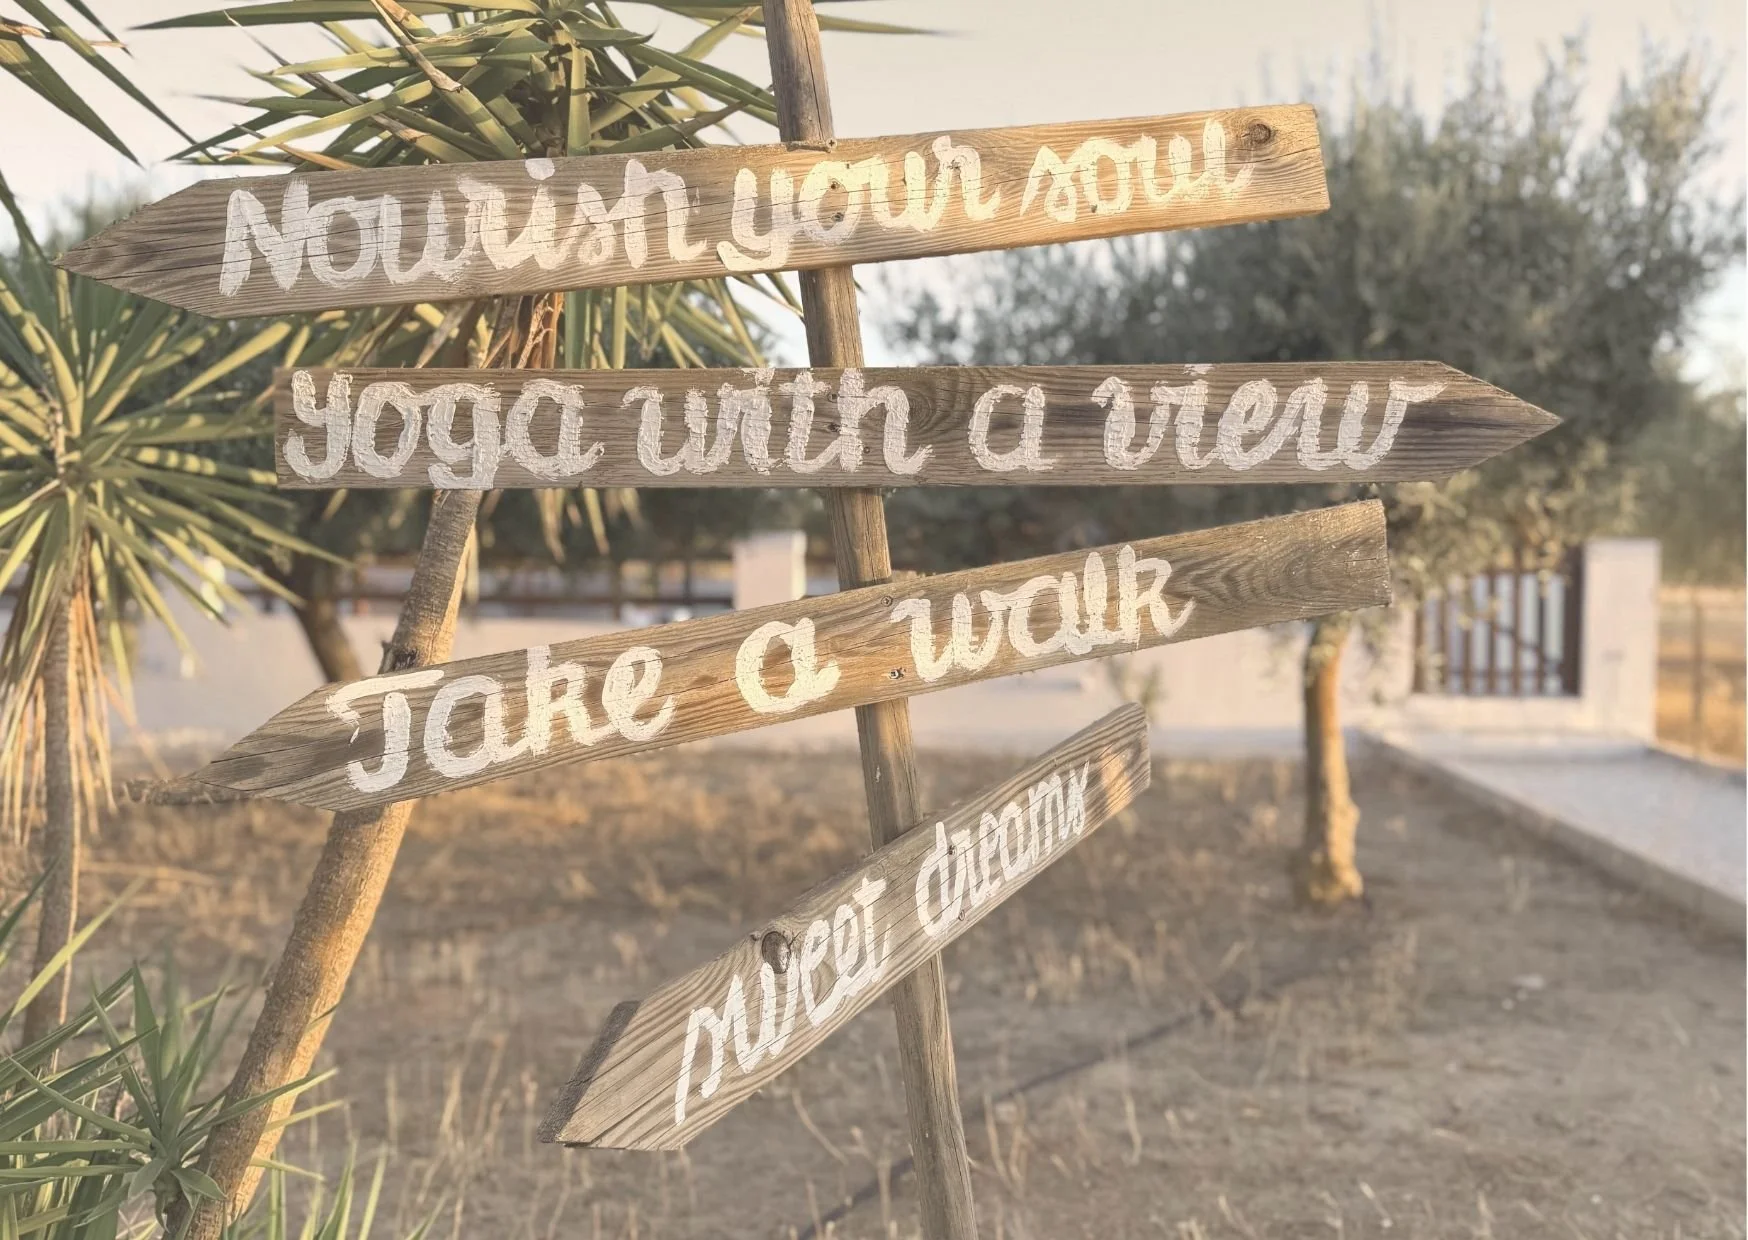 Nourish your soul
Yoga with a view
Take a walk
sweet dreams